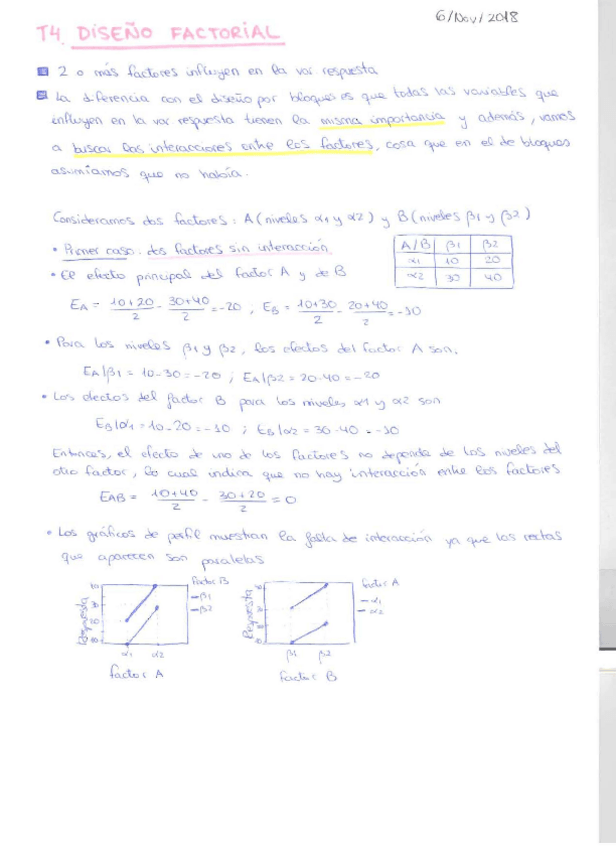 6/Nov/2018
T4. DISEÑO FACTORIAL
2 o más factores influyen en la var. respuesta
La diferencia con el diseño por bloques es que todas las variables que
influyen en la var respuesta tienen la misma importancia y además, vamos
a buscar las interacciones entre los factores, cosa que en el de bloques
asumíamos que no había.
Consideramos dos factores: A (niveles α1 y α2) y B (niveles β1 y β2)
• Primer caso: dos factores sin interacción
A/B β1 β2
α1 10 20
α2 30 40
• El efecto principal del factor A y de B
EA = 10+20/2 - 30+40/2 = -20 , EB = 10+30/2 - 20+40/2 = -10
• Para los niveles β1 y β2, los efectos del factor A son.
EA|β1 = 10-30 = -20 ; EA|β2 = 20-40 = -20
• Los efectos del factor B para los niveles α1 y α2 son
EB|α1 = 10-20 = -10 ; EB|α2 = 30-40 = -10
Entonces, el efecto de uno de los factores no depende de los niveles del
otro factor, lo cual indica que no hay interacción entre los factores
EAB = 10+40/2 - 30+20/2 = 0
• Los gráficos de perfil muestran la falta de interacción ya que las rectas
que aparecen son paralelas
Respuesta
40
30
20
10
α1 α2
factor A
Factor B
– β1
– β2
Respuesta
40
30
20
10
β1 β2
factor B
factor A
– α1
– α2